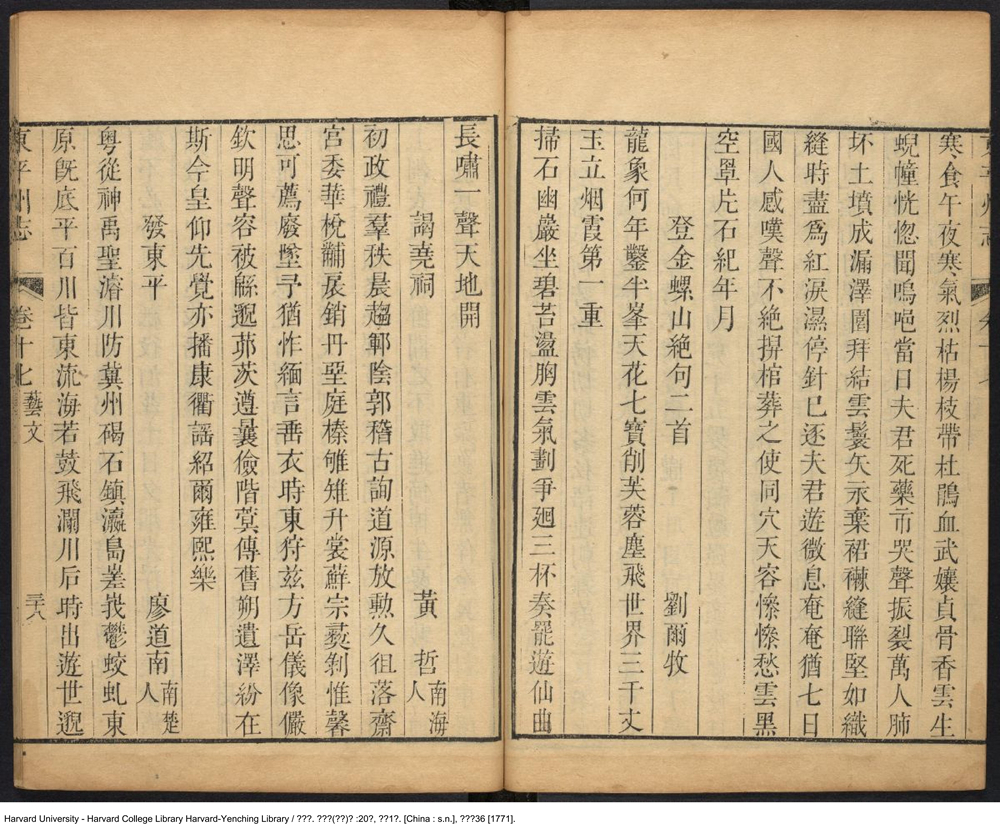 寒食午夜寒氣烈枯楊枝帶杜鵑血武孃貞骨香雲生
蜺幢恍惚聞嗚唈當日夫君死藥市哭聲振裂萬人肺
坏土墳成漏澤園拜結雲鬟矢永棄裙襟縫聯堅如織
縫時盡爲紅淚濕停針已逐夫君遊微息奄奄猶七日
國人感嘆聲不絶拚棺葬之使同穴天容慘慘愁雲黑
空羣片石紀年月
登金螺山絶句二首 劉爾牧
龍象何年鑿半峯天花七寶削芙蓉塵飛世界三千丈
玉立烟霞第一重
掃石幽巖坐碧苔盪胸雲氣劃爭迴三杯奏罷遊仙曲
長嘯一聲天地開
謁堯祠 黃哲南海人
初政禮羣秩晨趨鄆陰郭稽古詢道源放勲久徂落齋
宮委華梲黼扆銷丹堊庭榛雊雉升裳蘚宗彝剝惟馨
思可薦廢墜予猶怍緬言垂衣時東狩兹方岳儀像儼
欽明聲容被緜邈茆茨遵曩儉階蓂傳舊朔遺澤紛在
斯今皇仰先覺亦播康衢謡紹爾雍熙樂
發東平 廖道南南楚人
粤從神禹聖濬川防冀州碣石鎮瀛島嵳峩鬱蛟虬東
原旣底平百川皆東流海若鼓飛瀾川后時出遊世邈
東平州志 卷十七藝文 三十八
Harvard University - Harvard College Library Harvard-Yenching Library / ???. ???(??)? :20?, ??1?. [China : s.n.], ???36 [1771].